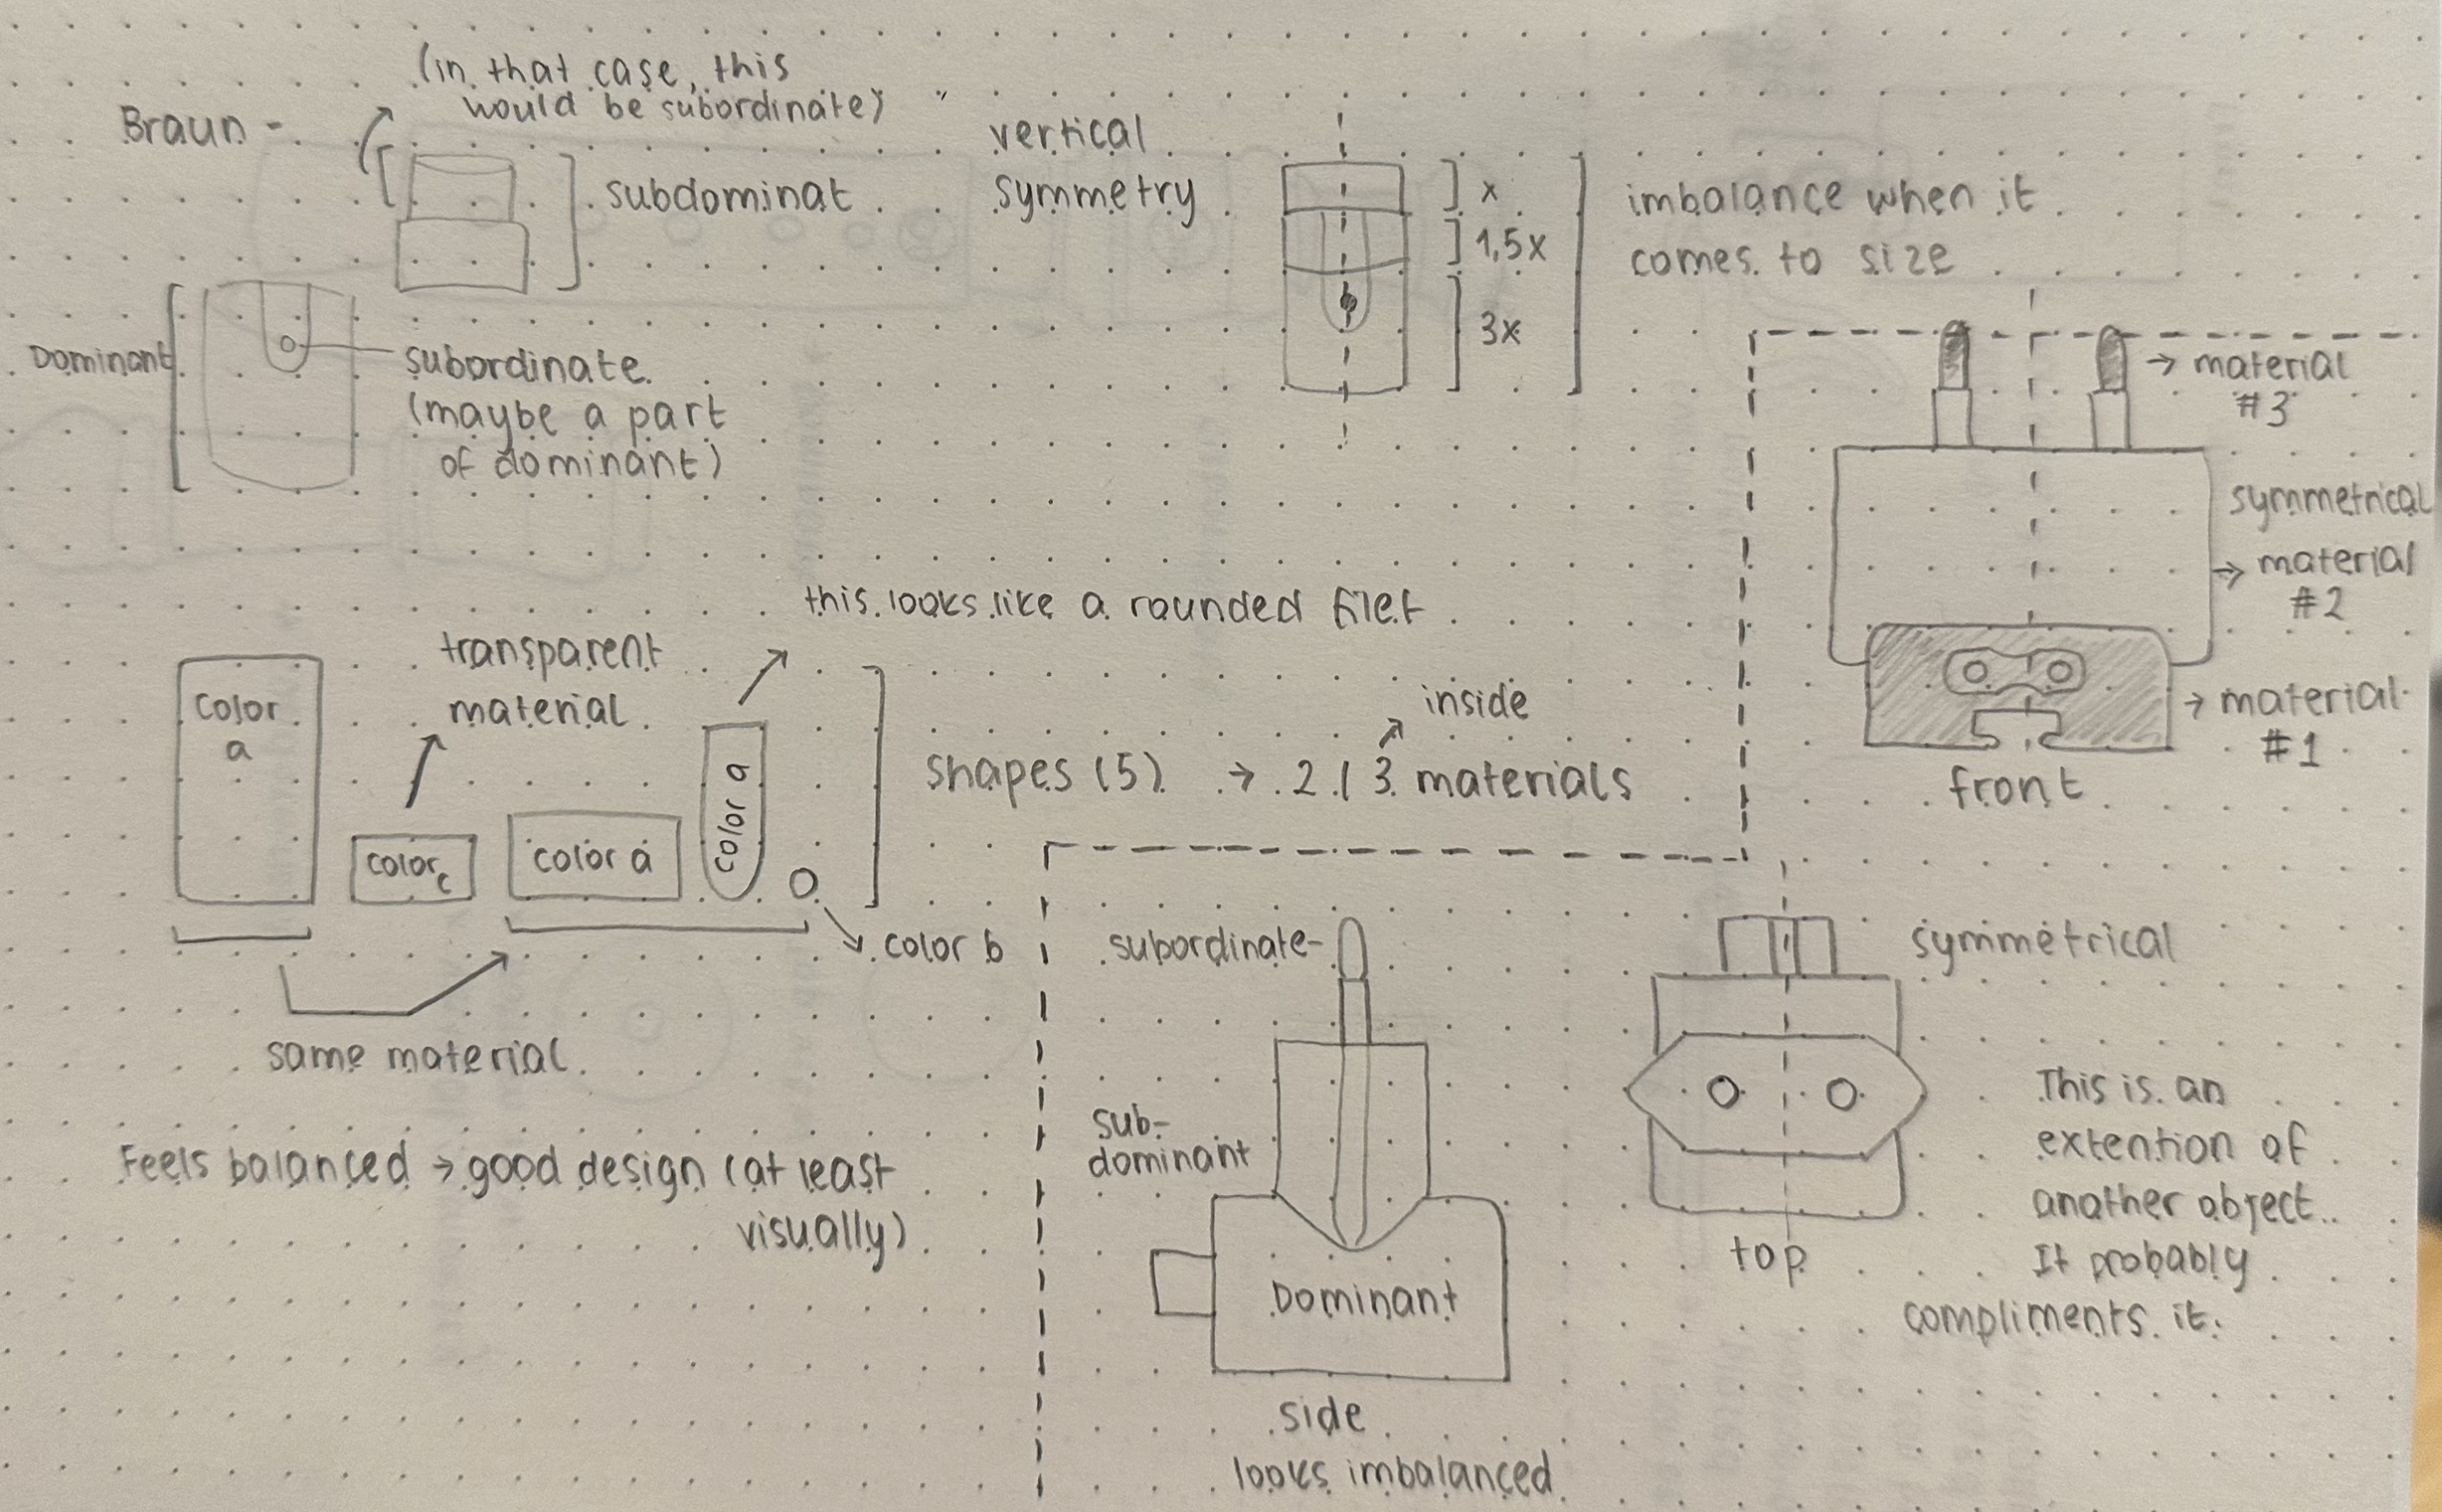 Braun -
(in that case, this
would be subordinate)
subdominat
Dominant
subordinate
(maybe a part
of dominant)
vertical
symmetry
x
1,5x
3x
imbalance when it
comes to size
material
#3
symmetrical
material
#2
material
#1
front
this looks like a rounded filet
transparent
material
color
a
color c
color a
color a
color b
same material
shapes (5) → 2 / 3 materials
inside
Feels balanced → good design (at least
visually)
subordinate-
sub-
dominant
Dominant
side
looks imbalanced
symmetrical
top
This is an
extention of
another object..
It probably
compliments it.